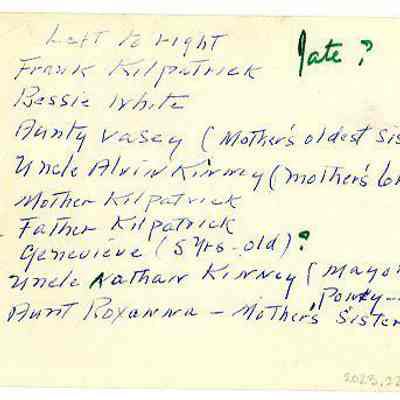 Left to right
Date?
Frank Kilpatrick
Bessie White
Aunty Vasey (Mother's oldest sis
Uncle Alvin Kinney (mother's
Mother Kilpatrick
Father Kilpatrick
Genevieve (5 yrs-old)?
Uncle Nathan Kinney (Mayo
Aunt Roxanna - Mother's Sister
2023.22